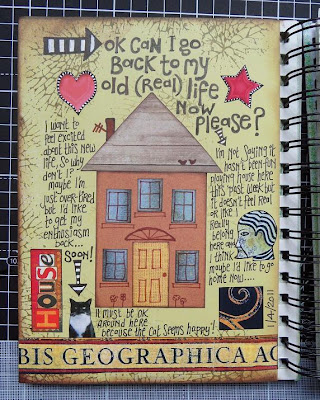 ok can I go
Back to my
old (real) life
now
please?
I want to
feel excited
about this new
life, so why
don't I?
maybe I'm
just over-tired
but I'd like
to get my
enthusiasm
back....
soon!
I'm not saying it
hasn't been fun
playing house here
this past week but
it doesn't feel real
or like I
really
belong
here and
I think
maybe I'd like to go
home now....
HOUSE
it must be ok
around here
because the cat seems happy!
1/4/2011
BIS GEOGRAPHICA AC